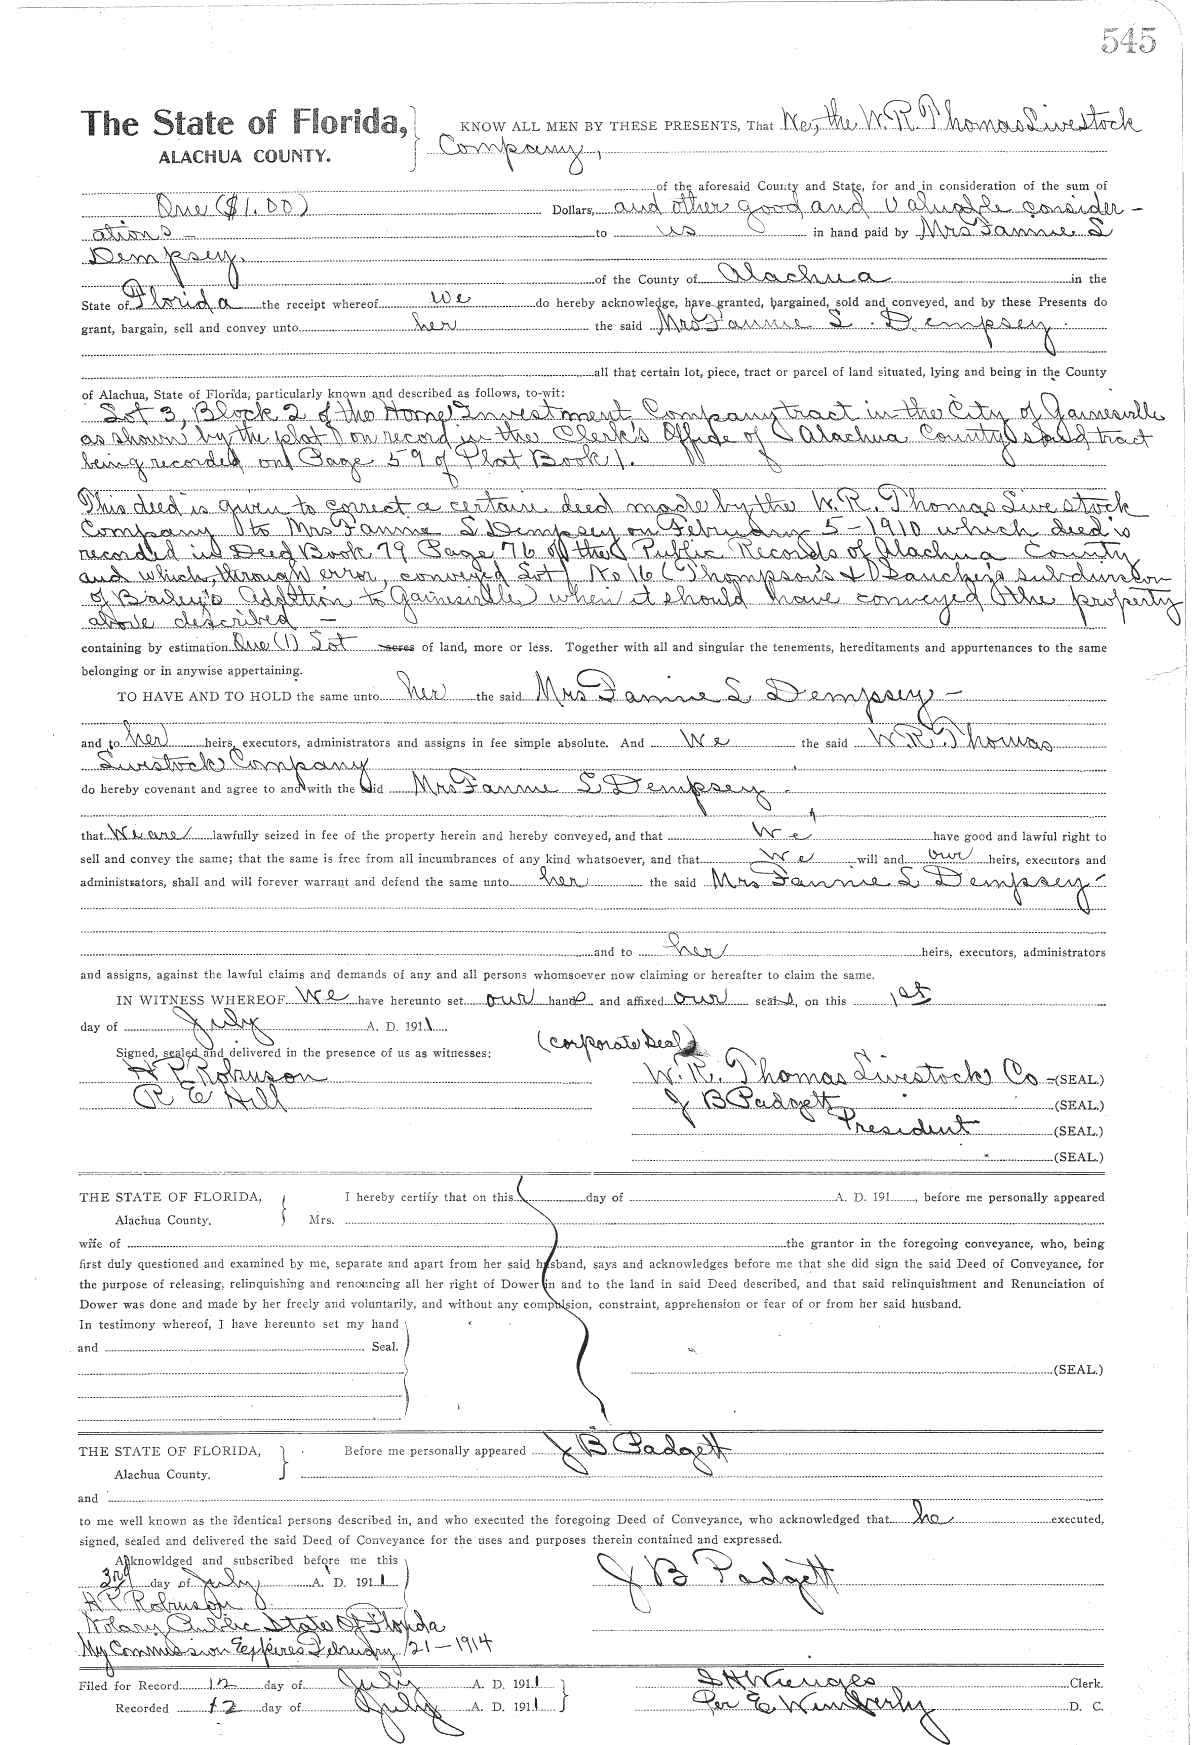 545
The State of Florida, KNOW ALL MEN BY THESE PRESENTS, That We, the W. R. Thomas Livestock
ALACHUA COUNTY. Company,
of the aforesaid County and State, for and in consideration of the sum of
One ($1.00) Dollars, and other good and valuable consider-
ations - to us in hand paid by Mrs Fannie L
Dempsey.
of the County of Alachua in the
State of Florida the receipt whereof we do hereby acknowledge, have granted, bargained, sold and conveyed, and by these Presents do
grant, bargain, sell and convey unto her the said Mrs Fannie L. Dempsey.
all that certain lot, piece, tract or parcel of land situated, lying and being in the County
of Alachua, State of Florida, particularly known and described as follows, to-wit:
Lot 3, Block 2 of the Home Investment Company tract in the City of Gainesville
as shown by the plat on record in the Clerk's Office of Alachua County said tract
being recorded on Page 59 of Plat Book 1.
This deed is given to correct a certain deed made by the W. R. Thomas Live stock
Company to Mrs Fannie L Dempsey on February 5-1910 which deed is
recorded in Deed Book 79 Page 76 of the Public Records of Alachua County
and which, through error, conveyed Lot No 16 (Thompson's & Sanchez's subdivision
of Bailey's Addition to Gainesville) when it should have conveyed the property
above described -
containing by estimation One (1) Lot acres of land, more or less. Together with all and singular the tenements, hereditaments and appurtenances to the same
belonging or in anywise appertaining.
TO HAVE AND TO HOLD the same unto her the said Mrs Fannie L Dempsey -
and to her heirs, executors, administrators and assigns in fee simple absolute. And We the said W. R. Thomas
Livestock Company
do hereby covenant and agree to and with the said Mrs Fannie L Dempsey.
that We are lawfully seized in fee of the property herein and hereby conveyed, and that We have good and lawful right to
sell and convey the same; that the same is free from all incumbrances of any kind whatsoever, and that We will and our heirs, executors and
administrators, shall and will forever warrant and defend the same unto her the said Mrs Fannie L Dempsey -
and to her heirs, executors, administrators
and assigns, against the lawful claims and demands of any and all persons whomsoever now claiming or hereafter to claim the same.
IN WITNESS WHEREOF We have hereunto set our hands and affixed our seals, on this 1st
day of July A. D. 1911.
(corporate Seal)
Signed, sealed and delivered in the presence of us as witnesses:
H P Robinson W. R. Thomas Livestock Co - (SEAL.)
R E Hill J B Padgett (SEAL.)
President (SEAL.)
(SEAL.)
THE STATE OF FLORIDA, I hereby certify that on this day of A. D. 191 , before me personally appeared
Alachua County. Mrs.
wife of the grantor in the foregoing conveyance, who, being
first duly questioned and examined by me, separate and apart from her said husband, says and acknowledges before me that she did sign the said Deed of Conveyance, for
the purpose of releasing, relinquishing and renouncing all her right of Dower in and to the land in said Deed described, and that said relinquishment and Renunciation of
Dower was done and made by her freely and voluntarily, and without any compulsion, constraint, apprehension or fear of or from her said husband.
In testimony whereof, I have hereunto set my hand
and Seal.
(SEAL.)
THE STATE OF FLORIDA, Before me personally appeared J B Padgett
Alachua County.
and
to me well known as the identical persons described in, and who executed the foregoing Deed of Conveyance, who acknowledged that he executed,
signed, sealed and delivered the said Deed of Conveyance for the uses and purposes therein contained and expressed.
Acknowldged and subscribed before me this
3rd day of July A. D. 1911 J B Padgett
H P Robinson
Notary Public State Of Florida
My Commission Expires February 21-1914
Filed for Record 12 day of July A. D. 1911 S H Wienges Clerk.
Recorded 12 day of July A. D. 1911 Per E Wimberly D. C.